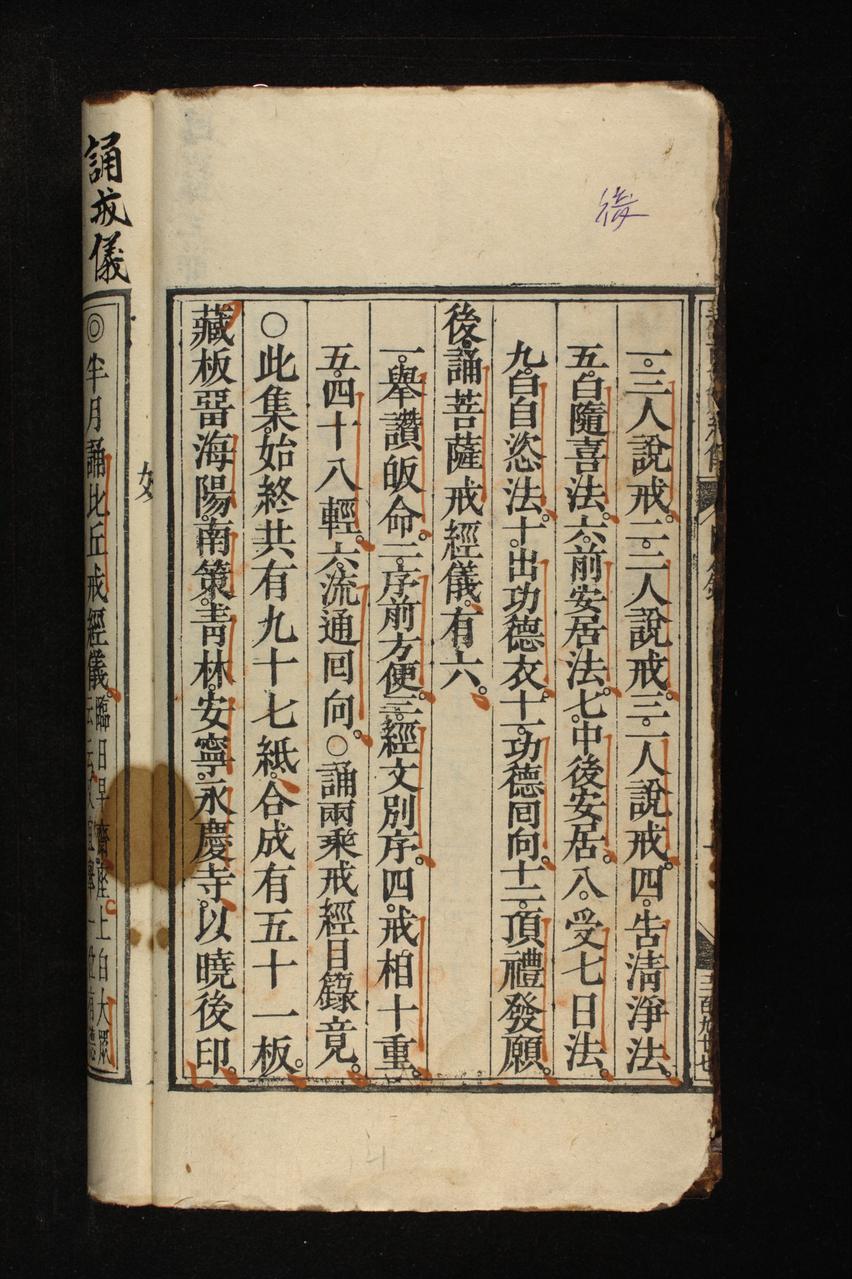 後
一。三人說戒。二。二人說戒。三。一人說戒。四。告清淨法。
五。白隨喜法。六。前安居法。七。中後安居。八。受七日法。
九。白自恣法。十。出功德衣。十一。功德回向。十二。頂禮發願。
後誦菩薩戒經儀。有六。
一。舉讚皈命。二。序前方便。三。經文別序。四。戒相十重。
五。四十八輕。六。流通回向。○誦兩乘戒經目錄竟。
○此集始終共有九十七紙。合成有五十一板。
藏板畱海陽。南策。青林。安寧。永慶寺。以曉後印。
女
誦戒儀
◎半月誦比丘戒經儀。
臨日早齋
上白大眾